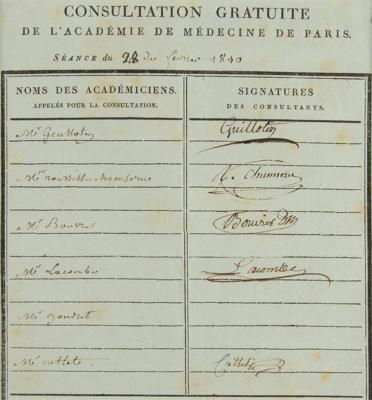 CONSULTATION GRATUITE
DE L'ACADÉMIE DE MÉDECINE DE PARIS.
SÉANCE du 28 de fevrier 1810
NOMS DES ACADÉMICIENS. SIGNATURES
APPELÉS POUR LA CONSULTATION. DES CONSULTANTS.
Mr Guillotin Guillotin
Mr
Mr Bouvier Bouvier
Mr Lacombe Lacombe
Mr Gondret
Mr